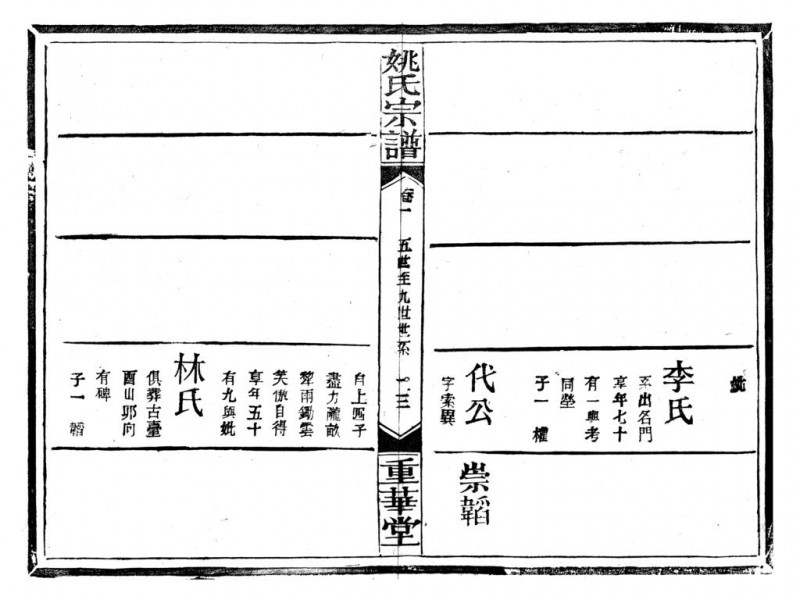 李氏
系出名門
享年七十
有一與考
同塋
子一 權
代公
字索異
崇韜
姚氏宗譜
卷一 五世至九世世系
重華堂
自上
盡力隴畝
犂雨鋤雲
笑傲自得
享年五十
有九與妣
林氏
俱葬古臺
酉山卯向
有碑
子一 韜